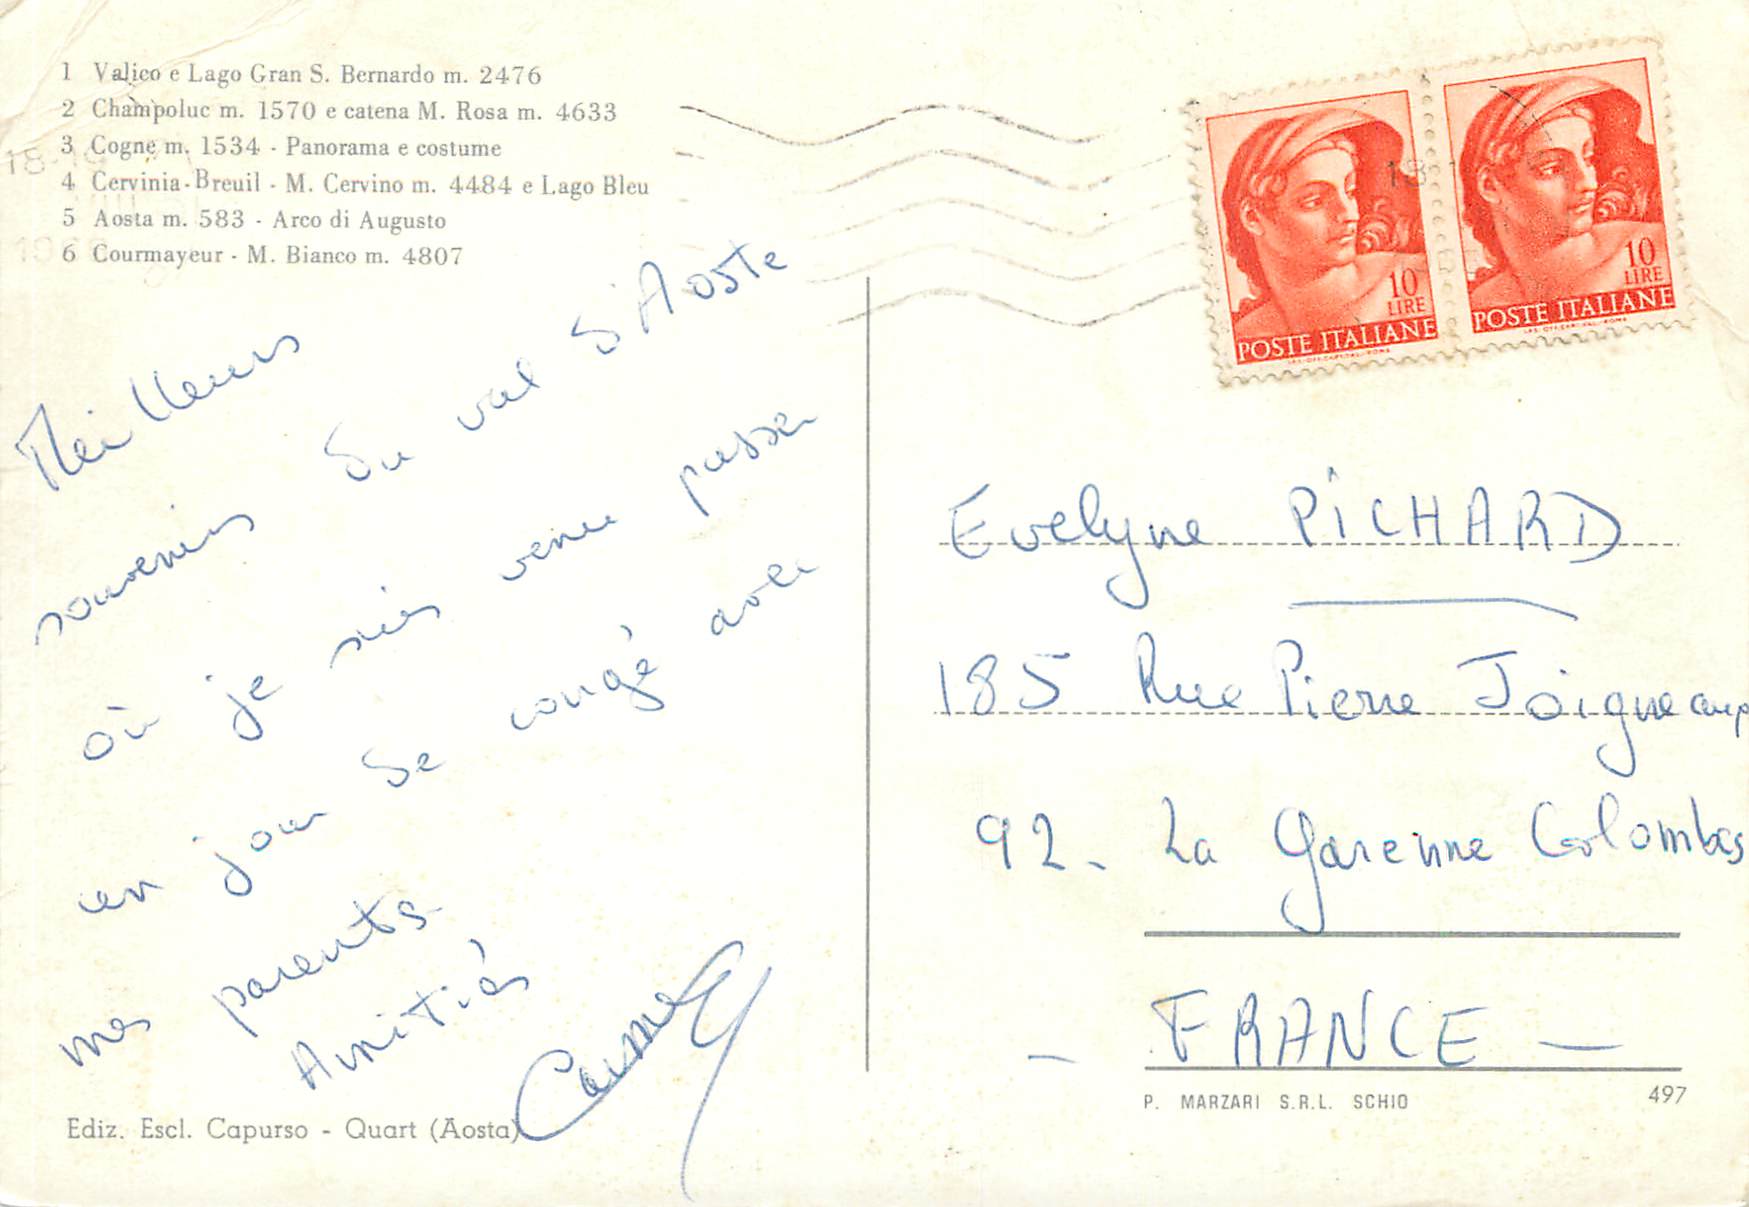 1 Valico e Lago Gran S. Bernardo m. 2476
2 Champoluc m. 1570 e catena M. Rosa m. 4633
3 Cogne m. 1534 - Panorama e costume
4 Cervinia-Breuil - M. Cervino m. 4484 e Lago Bleu
5 Aosta m. 583 - Arco di Augusto
6 Courmayeur - M. Bianco m. 4807
Meilleurs
souvenirs du val d'Aoste
où je suis venu passer
un jour de congé avec
mes parents.
Amitiés
Ediz. Escl. Capurso - Quart (Aosta)
10 LIRE
POSTE ITALIANE
10 LIRE
POSTE ITALIANE
Evelyne PICHARD
185 Rue Pierre Joigneaux
92 - La Garenne Colombes
- FRANCE -
P. MARZARI S.R.L. SCHIO
497